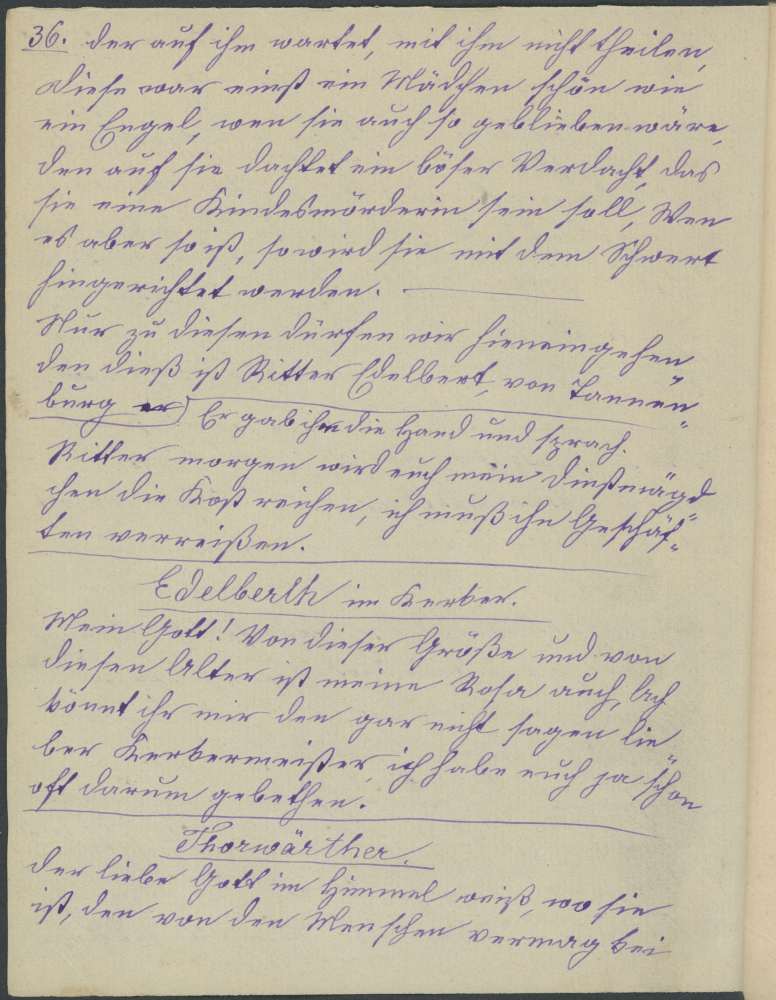 36. der auf ihm wartet, mit ihm nicht theilen,
Diese war einst ein Mädchen schön wie
ein Engel, wen sie auch so geblieben wäre,
den auf sie dachtet ein böser Verdacht, das
sie eine Kindesmörderin sein soll, Wen
es aber so iß, so wird sie mit dem Schwert
hingerichtet werden.
Nur zu diesen dürfen wir hieneingehen
den dieß ist Ritter Edelbert, von Tannen„
burg er) Er gab ihm die Hand und sprach.
Ritter morgen wird euch mein Dinstmägd„
chen die Kost reichen, ich muß ihn Geschäf„
ten verreißen.
Edelberth im Kerker.
Mein Gott! Von dieser Größe und von
diesen Alter ist meine Rosa auch, Ach
könnt ihr mir den gar nicht sagen lie„
ber Kerkermeister, ich habe euch ja schon
oft darum gebethen.
Thorwärther.
der liebe Gott im Himmel weiß, wo sie
ist, den von den Menschen vermag bei